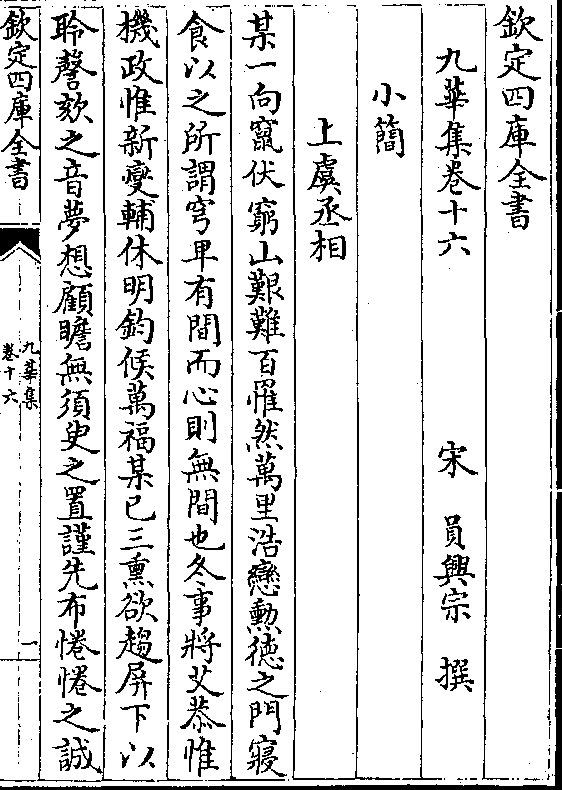 欽定四庫全書
九華集卷十六
宋 員興宗 撰
小簡
上虞丞相
某一向竄伏窮山艱難百罹然萬里浩戀勲徳之門寢
食以之所謂穹卑有間而心則無間也冬事將艾恭惟
機政惟新變輔休明鈞候萬福某已三熏欲趨屏下以
聆謦欬之音夢想顧瞻無須臾之置謹先布惓惓之誠
欽定四庫全書
九華集
卷十六
一